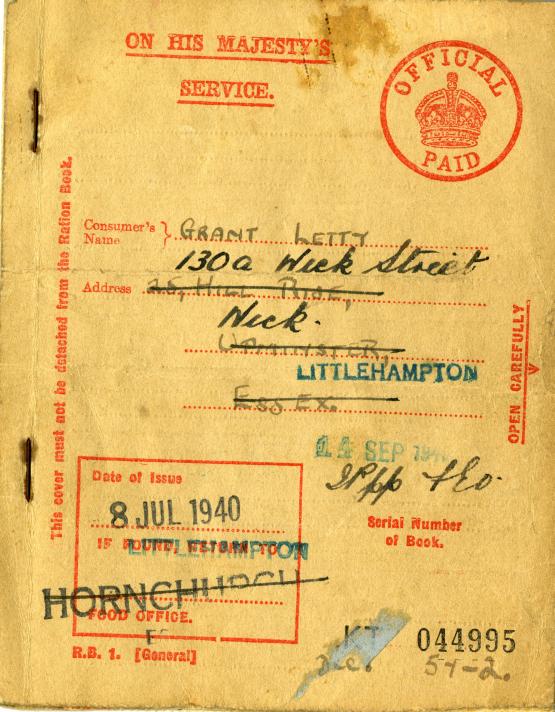 ON HIS MAJESTY'S
SERVICE.
OFFICIAL
PAID
This cover must not be detached from the Ration Book.
Consumer's
Name
GRANT LETTY
130a Wick Street
Address 25, HILL RISE,
Wick.
UPMINSTER,
LITTLEHAMPTON
ESSEX.
OPEN CAREFULLY
14 SEP 194
Date of Issue
8 JUL 1940
IF FOUND, RETURN TO
LITTLEHAMPTON
HORNCHURCH
FOOD OFFICE.
Serial Number
of Book.
R.B. 1. [General]
044995